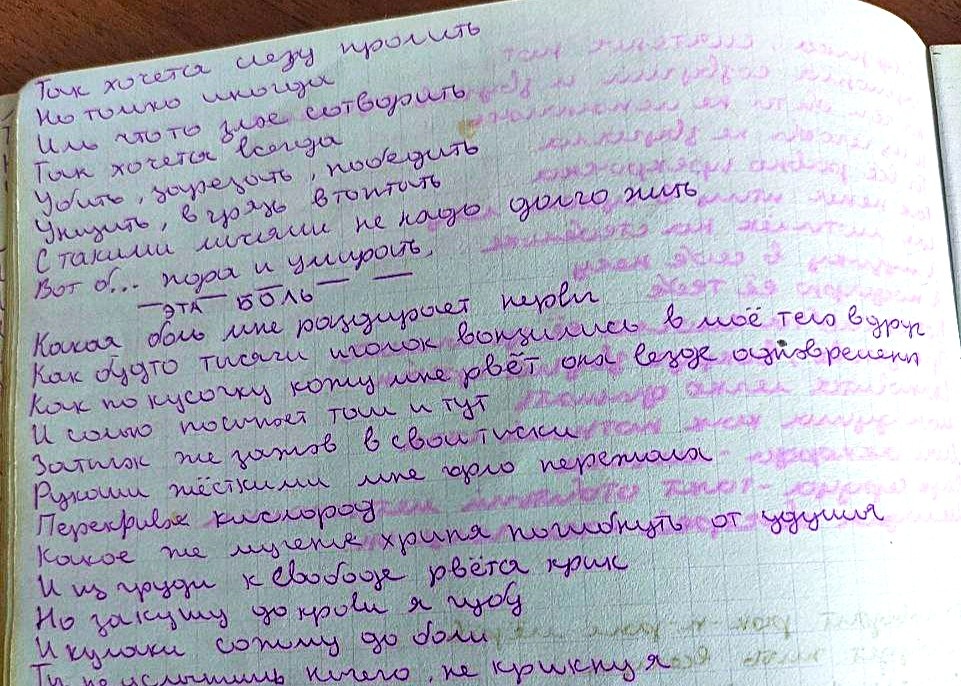 Так хочется слезу пролить
Но только иногда
Иль что то злое сотворить
Так хочется всегда
Убить, зарезать, победить
Унизить, в грязь втоптать
С такими мыслями не надо долго жить
Вот б... пора и умирать.
— ЭТА — БОЛЬ — —
Какая боль мне раздирает нервы
Как будто тисячи иголок вонзились в моё тело вдруг
Как по кусочку кожу мне рвёт она везде одновременн
И солью посыпает там и тут
Затылок же зажав в свои тиски
Руками жёсткими мне горло пережала -
Перекрывая кислород
Какое же мученье хрипя погибнуть от удушья
И из груди к свободе рвётся крик
Но закушу до крови я губу
И кулаки сожму до боли
Ты не услышишь ничего, не крикну я